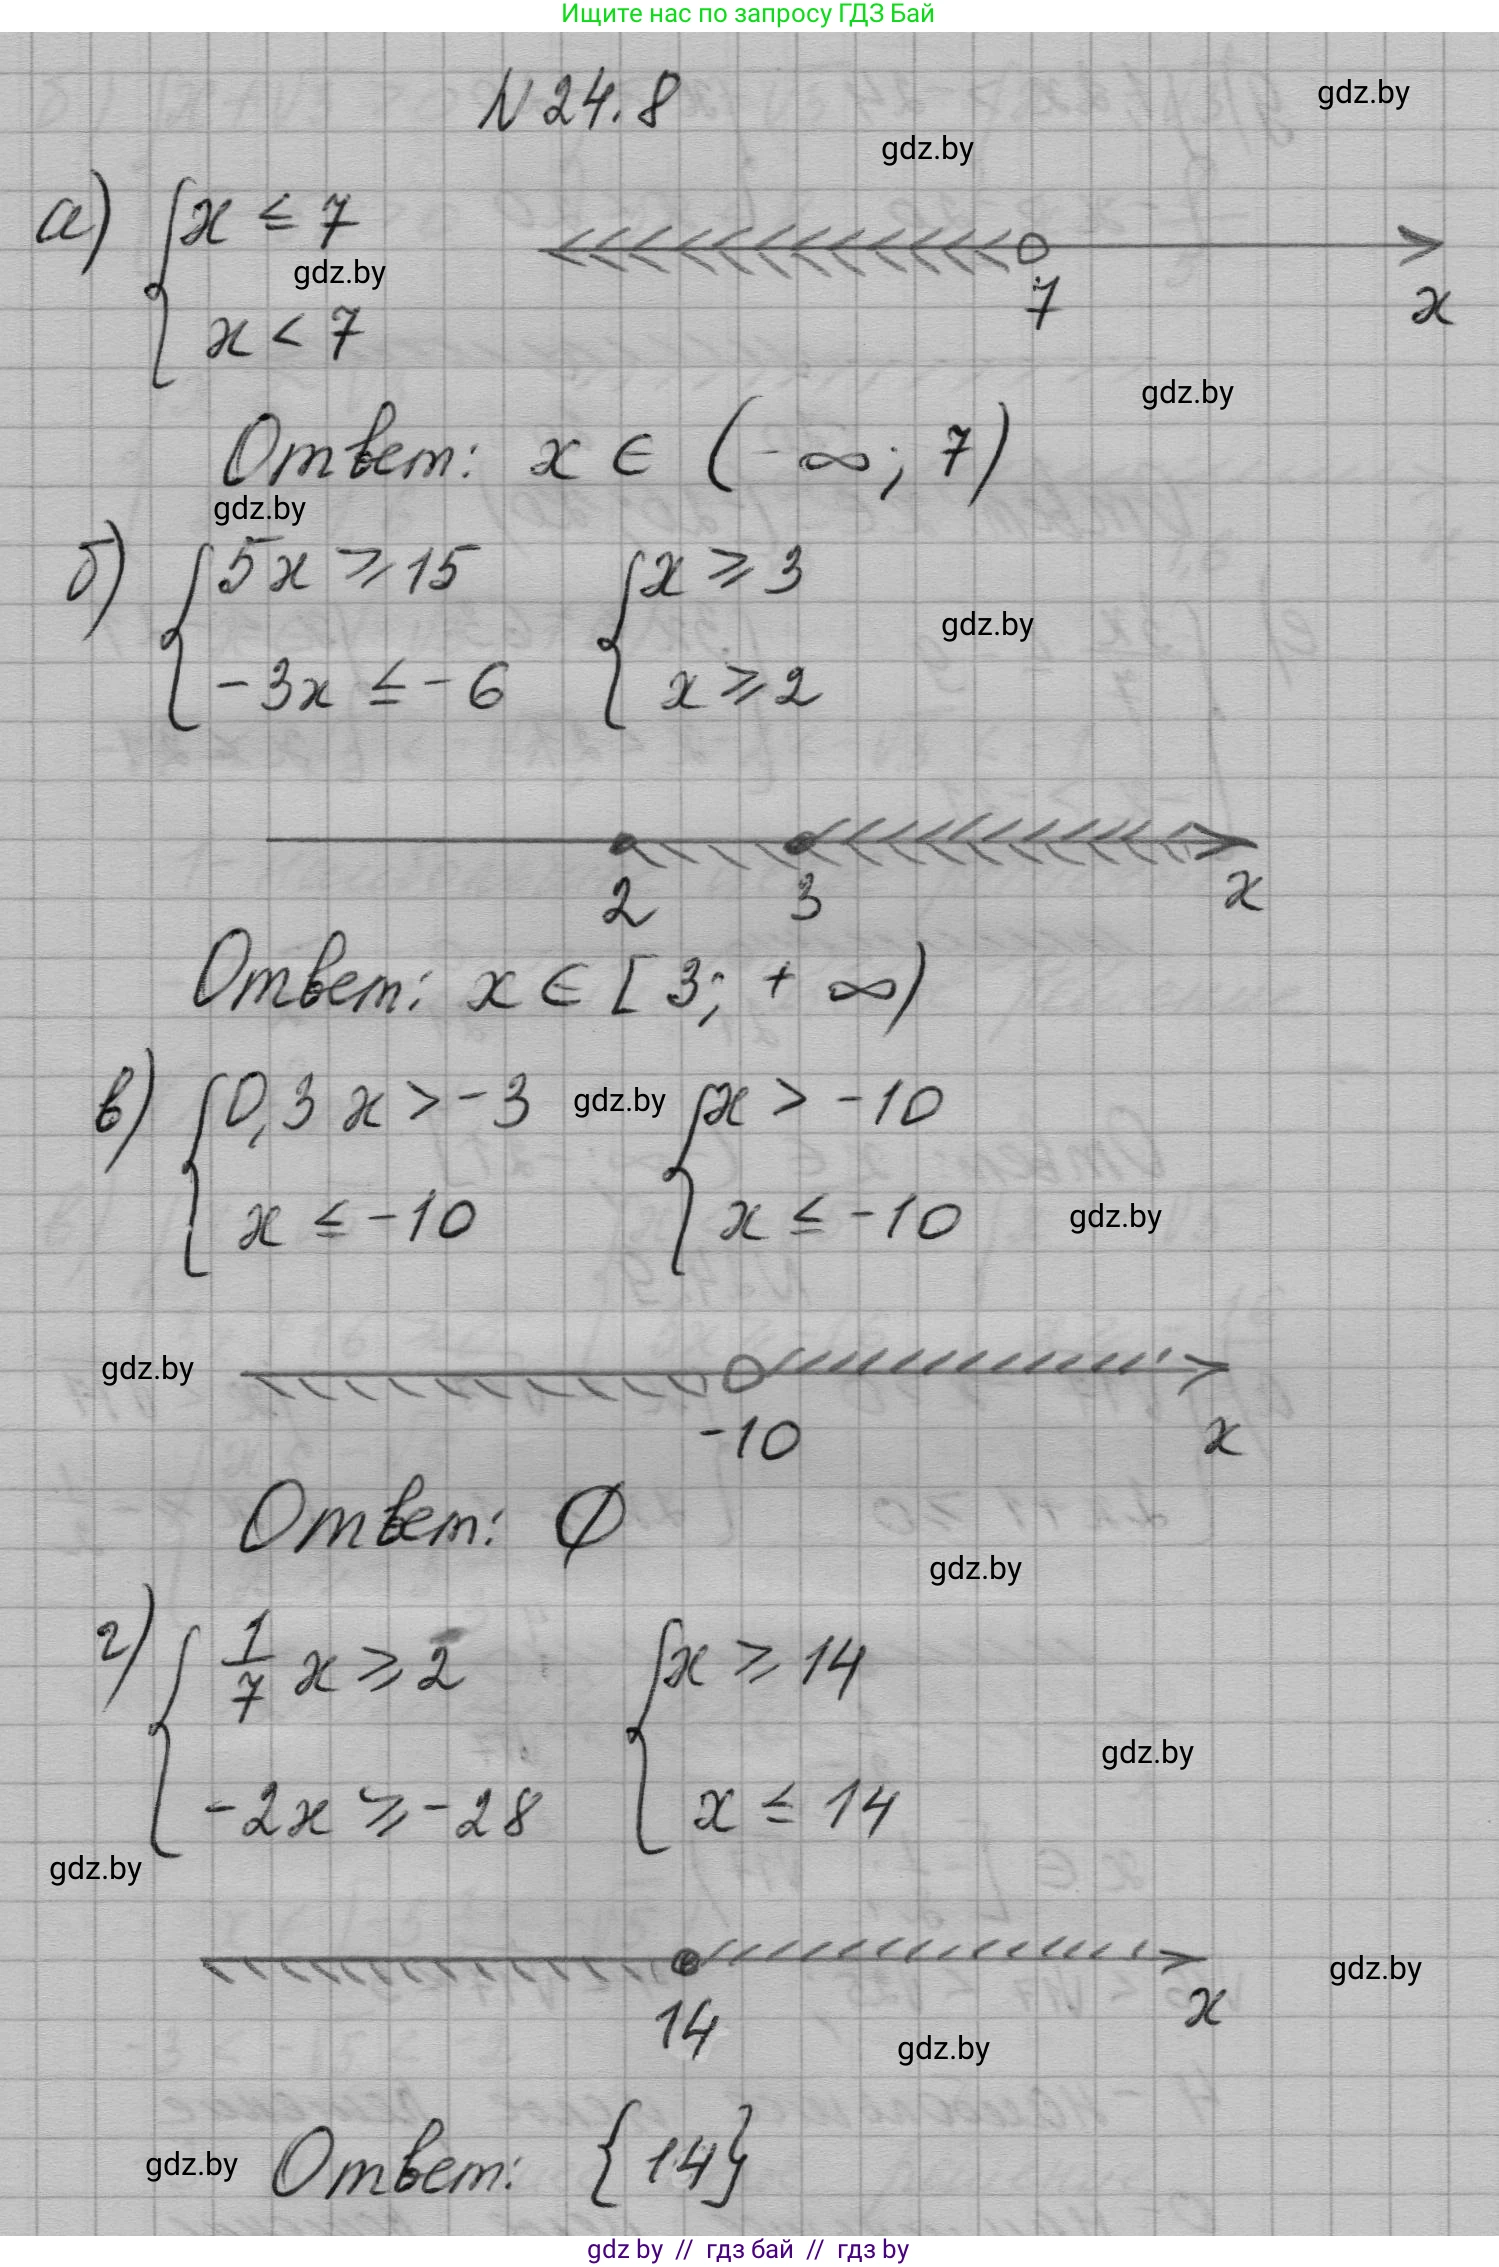 Ищите нас по запросу ГДЗ Бай
N 24.8
gdz.by
gdz.by
а) { x ≤ 7
gdz.by
x < 7
7
x
gdz.by
Ответ: x ∈ (-∞; 7)
gdz.by
б) { 5x ≥ 15 { x ≥ 3
gdz.by
-3x ≤ -6 x ≥ 2
2 3 x
Ответ: x ∈ [3; +∞)
в) { 0,3x > -3 gdz.by { x > -10
x ≤ -10 x ≤ -10 gdz.by
gdz.by
-10 x
Ответ: ∅
gdz.by
г) { 1/7 x ≥ 2 { x ≥ 14
gdz.by
-2x ≥ -28 x ≤ 14
gdz.by
gdz.by
14 x
gdz.by
gdz.by Ответ: {14}
gdz by // гдз бай // гдз by